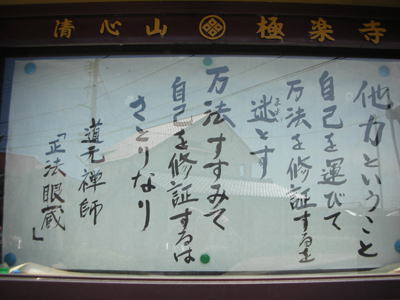 清心山 極楽寺
他力ということ
自己を運びて
万法を修証するを
迷とす
まよい
万法すすみて
自己を修証するは
さとりなり
道元禅師
「正法眼蔵」